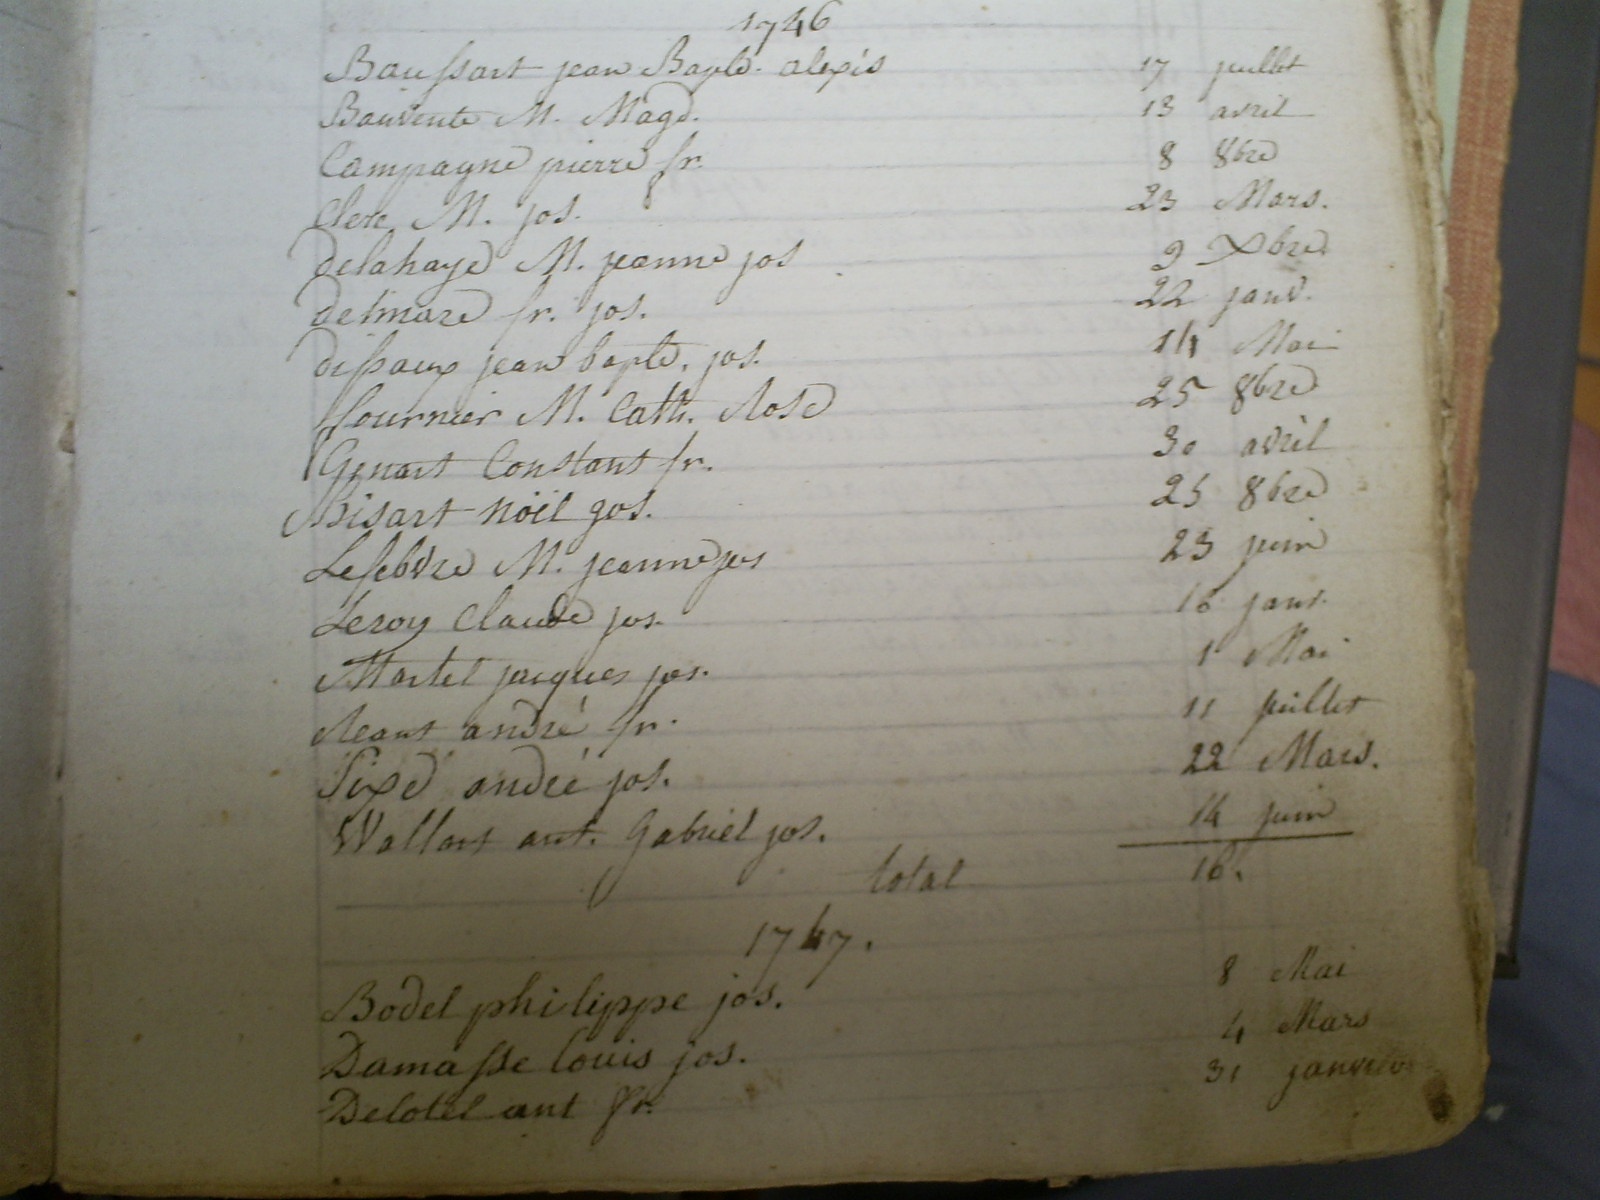 1746
Baussart jean Bapte. alexis 17 juillet
Bauvente M. Magd. 13 avril
Campagne pierre fr. 8 8bre
Clerc M. jos. 23 Mars.
delahaye M. jeanne jos 9 Xbre
delmare fr. jos. 22 janv.
dissaux jean bapte. jos. 14 Mai
fournier M. Cath. Rose 25 8bre
Genart Constant fr. 30 avril
hisart nöel jos. 25 8bre
Lefebvre M. jeanne jos 23 juin
Leroy Claude jos. 16 janv.
Martel jacques jos. 1 Mai
Reant andré fr. 11 juillet
Sixe andré jos. 22 Mars.
Wallart ant. Gabriel jos. 14 juin
total 16.
1747.
Bodel philippe jos. 8 Mai
Damasse louis jos. 4 Mars
Delotel ant fr. 31 janvier